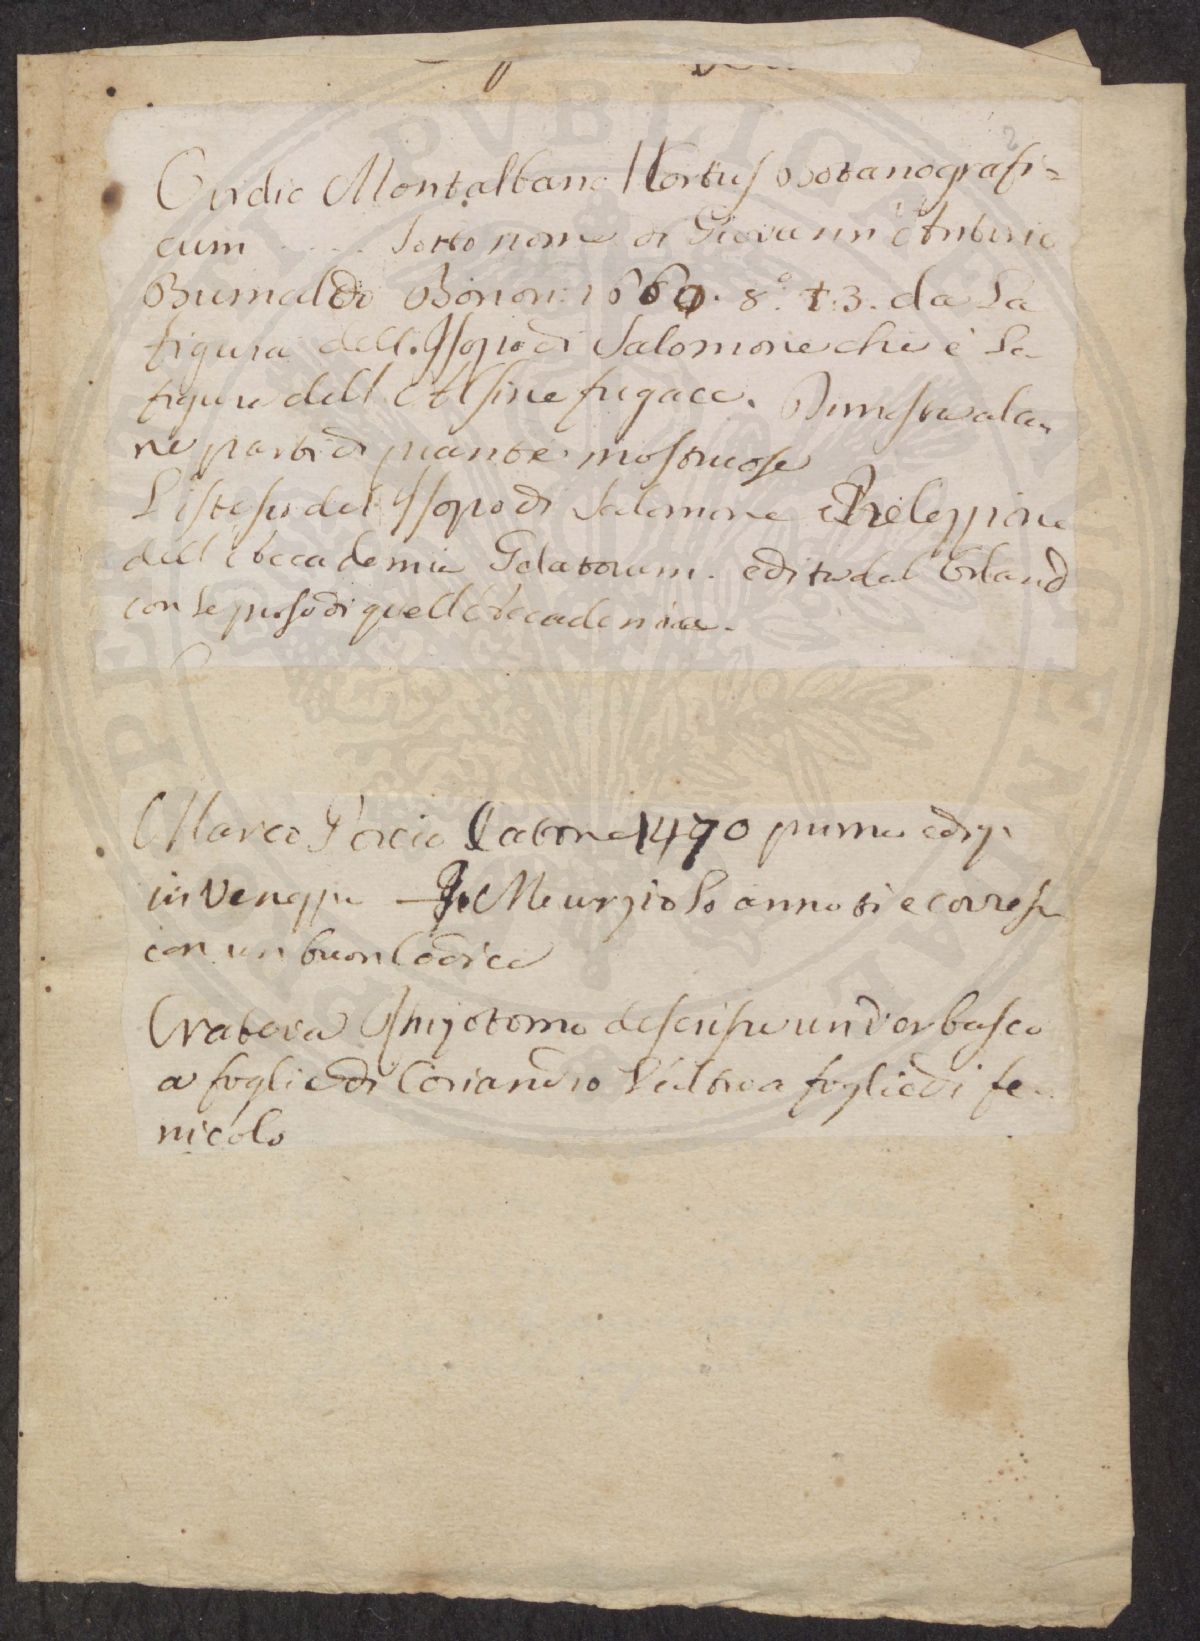 Ovidio Montalbano Hortus Botanografi=
cum ..... sotto nome di Giovanni Antonio
Bumaldo Bonon: 1660. 8.° t. 3. da la
figura dell. Issopo di Salomone che è la
figura dell Alsine fugace. Dimostra alcu
ne parti di piante mostruose
L'istesso del Issopo di Salomone Prelezzione
dell Accademia Gelatorum. edita dal
con le prose di quell Accademia.
Marco Porcio Catone 1470 prima ediz.
in Venezia Meurzio lo annotò e corresse
con un buon Codice
Crateva Rhizotomo descrisse un Verbasco
a foglie di Coriandro l'altro a foglie di fe
nicolo